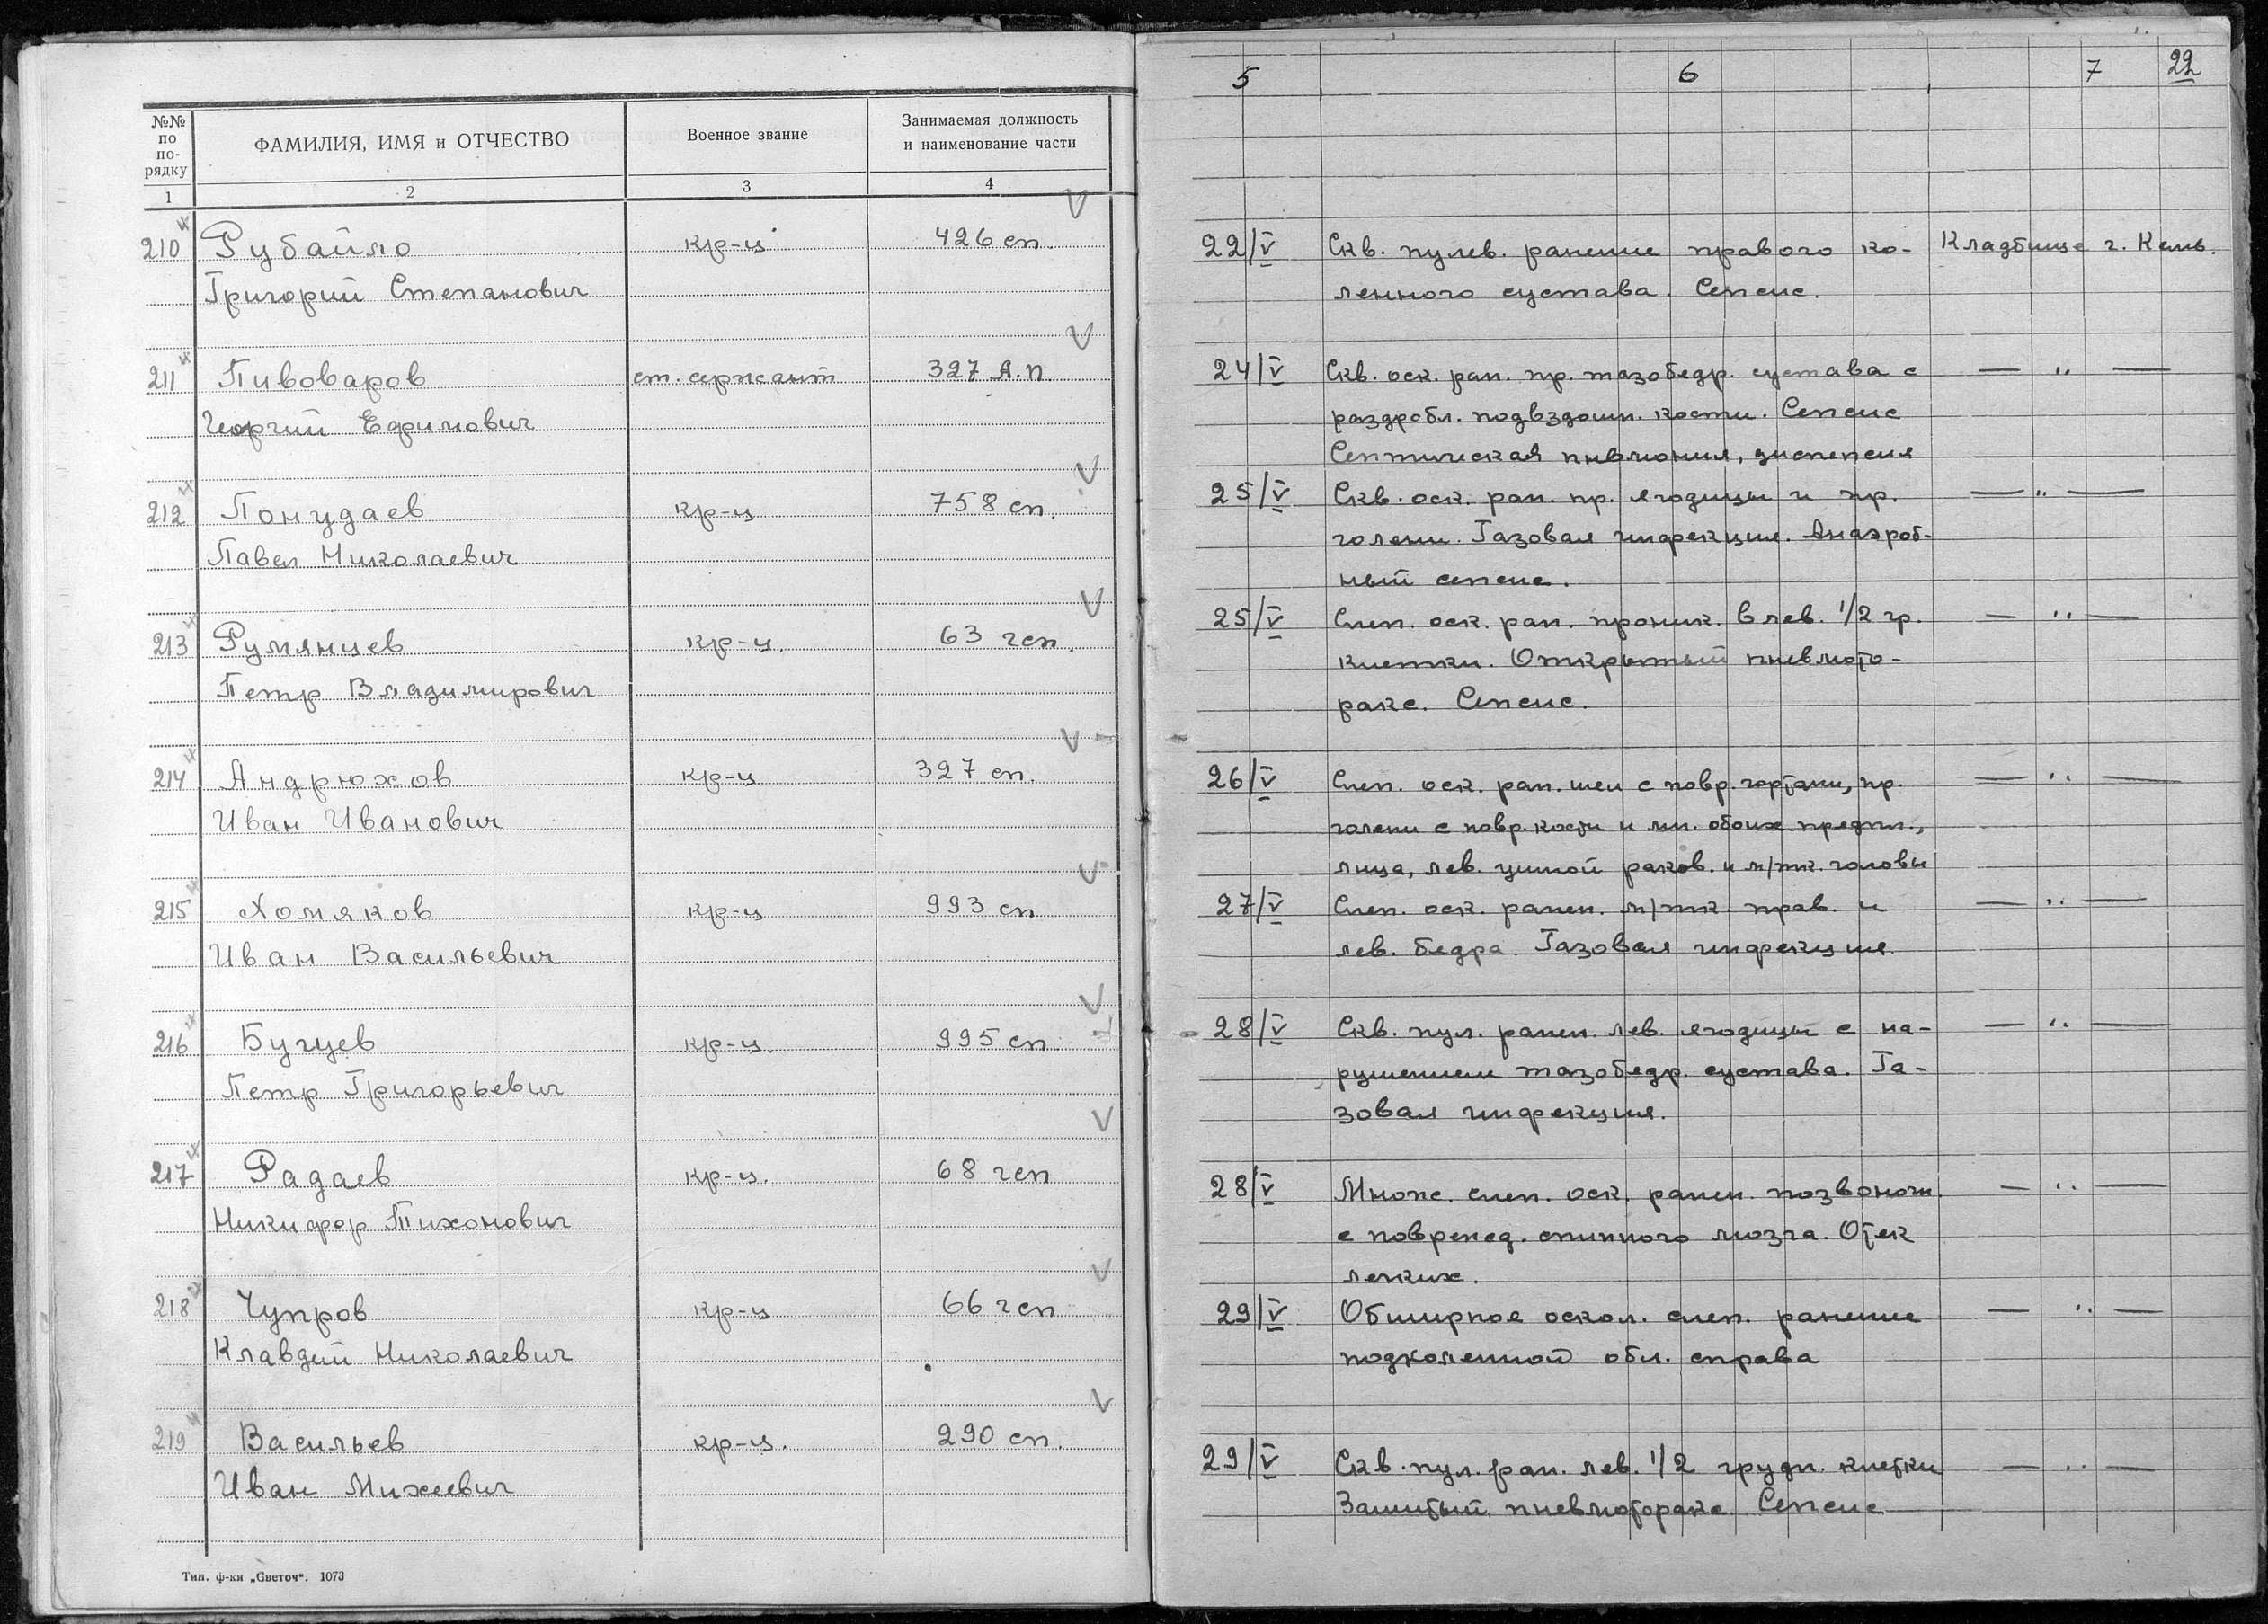 5 6 7 22
№№ по по-рядку
ФАМИЛИЯ, ИМЯ и ОТЧЕСТВО
Военное звание
Занимаемая должность
и наименование части
1 2 3 4
210 Рубайло кр-ц 426 сп. 22/V Скв. пулев. ранение правого ко- Кладбище г. Кемь.
Григорий Степанович ленного сустава. Сепсис.
211 Пивоваров ст. сержант 327 А.п. 24/V Скв. оск. ран. пр. тазобедр. сустава с — " —
Георгий Ефимович раздробл. подвздошн. кости. Сепсис
Септическая пневмония, диспепсия
212 Понудаев кр-ц 758 сп. 25/V Скв. оск. ран. пр. ягодицы и пр. — " —
Павел Николаевич голени. Газовая инфекция. Анаэроб-
ный сепсис.
213 Румянцев кр-ц. 63 гсп. 25/V Слеп. оск. ран. проник. в лев. 1/2 гр. — " —
Петр Владимирович клетки. Открытый пневмото-
ракс. Сепсис.
214 Андрюхов кр-ц 327 сп. 26/V Слеп. оск. ран. шеи с повр. гортани, пр. — " —
Иван Иванович голени с повр. кости и мн. обоих предпл.,
лица, лев. ушной раков. и м/тк. головы
215 Хомяков кр-ц 993 сп 27/V Слеп. оск. ранен. м/тк. прав. и — " —
Иван Васильевич лев. бедра. Газовая инфекция.
216 Бугцев кр-ц. 995 сп. 28/V Скв. пул. ранен. лев. ягодицы с на- — " —
Петр Григорьевич рушением тазобедр. сустава. Га-
зовая инфекция.
217 Радаев кр-ц. 68 гсп 28/V Множ. слеп. оск. ранен. позвоноч. — " —
Никифор Тихонович с поврежд. спинного мозга. Отек
легких.
218 Чупров кр-ц 66 гсп 29/V Обширное оскол. слеп. ранение — " —
Клавдий Николаевич подколенной обл. справа
219 Васильев кр-ц. 290 сп. 29/V Скв. пул. ран. лев. 1/2 грудн. клетки — " —
Иван Михеевич Зашитый пневмоторакс. Сепсис
Тип. ф-ки „Светоч“. 1073